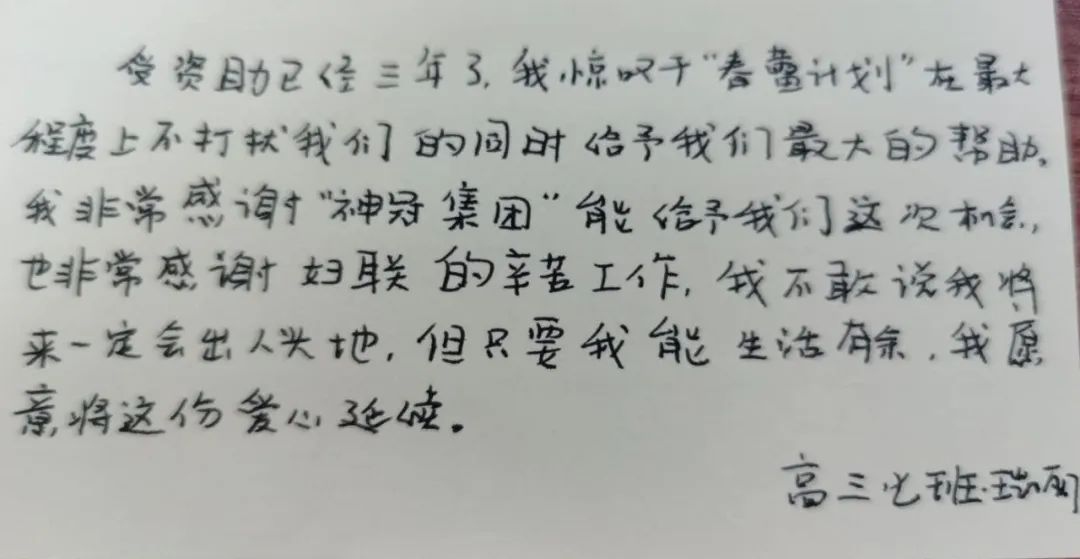 受资助已经三年了，我惊叹于“春蕾计划”在最大
程度上不打扰我们的同时给予我们最大的帮助，
我非常感谢“神冠集团”能给予我们这次机会，
也非常感谢妇联的辛苦工作，我不敢说我将
来一定会出人头地，但只要我能生活有余，我愿
意将这份爱心延续。
高三 班